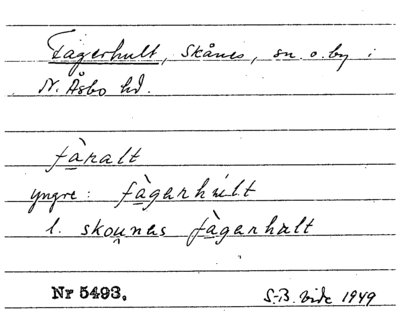 Fagerhult, Skånes, sn. o. by i
N. Åsbo hd.
fàralt
yngre: fàgarhult
l. skounas fàgarhalt
Nr 5493.
S.-B. Vide 1949